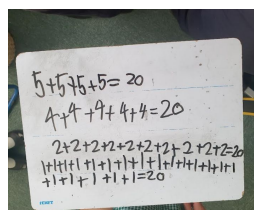 5+5+5+5=20
4+4+4+4+4=20
2+2+2+2+2+2+2+2+2+2=20
1+1+1+1+1+1+1+1+1+1+1+1+1+1+1
+1+1+1+1+1=20